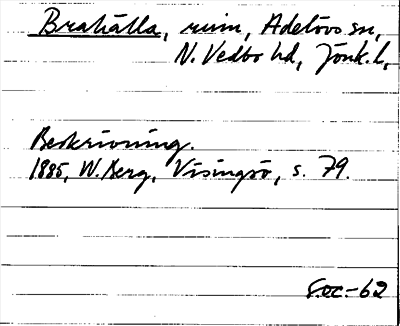 Brahälla, ruin, Adelövs sn,
N. Vedbo hd, Jönk. l,
Beskrivning.
1885, W. Berg, Visingsö, s. 79.
-62